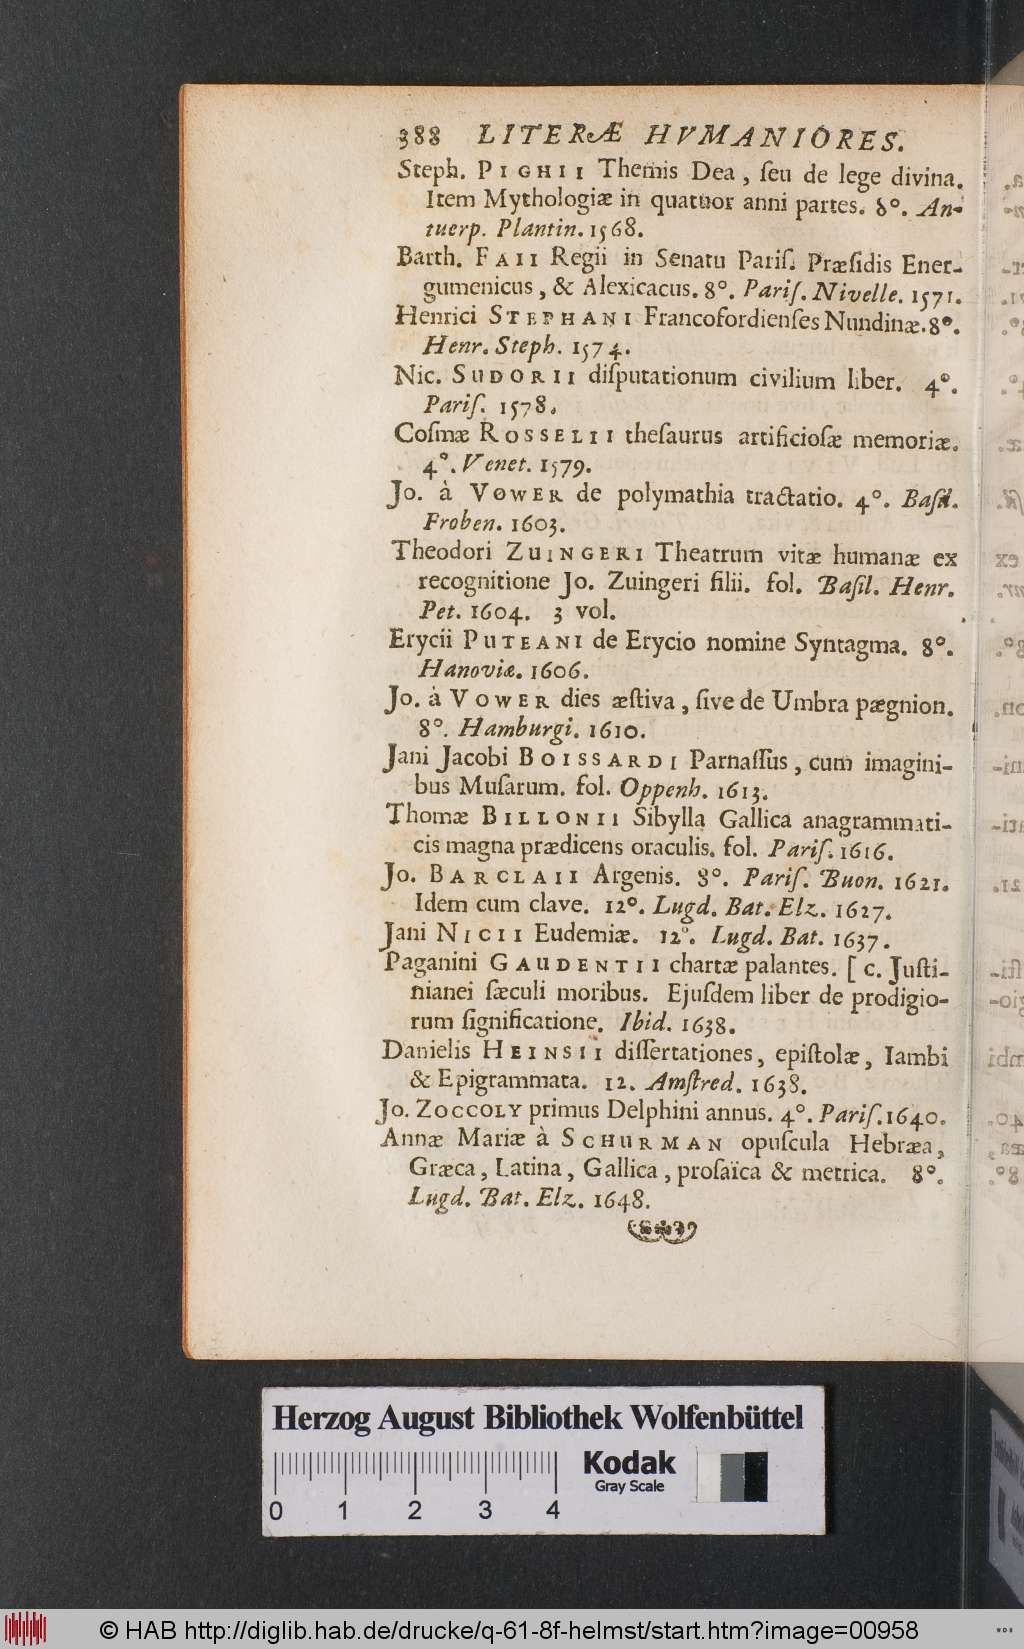 388 LITERÆ HVMANIORES.
Steph. PIGHII Themis Dea, ſeu de lege divina.
Item Mythologiæ in quatuor anni partes. 8°. An-
tuerp. Plantin. 1568.
Barth. FAII Regii in Senatu Pariſ. Præſidis Ener-
gumenicus, & Alexicacus. 8°. Pariſ. Nivelle. 1571.
Henrici STEPHANI Francofordienſes Nundinæ. 8°.
Henr. Steph. 1574.
Nic. SUDORII diſputationum civilium liber. 4°.
Pariſ. 1578.
Coſmæ ROSSELII theſaurus artificioſæ memoriæ.
4°. Venet. 1579.
Jo. à VOWER de polymathia tractatio. 4°. Baſil.
Froben. 1603.
Theodori ZUINGERI Theatrum vitæ humanæ ex
recognitione Jo. Zuingeri filii. fol. Baſil. Henr.
Pet. 1604. 3 vol.
Erycii PUTEANI de Erycio nomine Syntagma. 8°.
Hanoviæ. 1606.
Jo. à VOWER dies æſtiva, ſive de Umbra pægnion.
8°. Hamburgi. 1610.
Jani Jacobi BOISSARDI Parnaſſus, cum imagini-
bus Muſarum. fol. Oppenh. 1613.
Thomæ BILLONII Sibylla Gallica anagrammati-
cis magna prædicens oraculis. fol. Pariſ. 1616.
Jo. BARCLAII Argenis. 8°. Pariſ. Buon. 1621.
Idem cum clave. 12°. Lugd. Bat. Elz. 1627.
Jani NICII Eudemiæ. 12°. Lugd. Bat. 1637.
Paganini GAUDENTII chartæ palantes. [ c. Juſti-
nianei ſæculi moribus. Ejuſdem liber de prodigio-
rum ſignificatione. Ibid. 1638.
Danielis HEINSII diſſertationes, epiſtolæ, Iambi
& Epigrammata. 12. Amſtred. 1638.
Jo. ZOCCOLY primus Delphini annus. 4°. Pariſ. 1640.
Annæ Mariæ à SCHURMAN opuſcula Hebræa,
Græca, Latina, Gallica, proſaïca & metrica. 8°.
Lugd. Bat. Elz. 1648.
Herzog August Bibliothek Wolfenbüttel
Kodak
Gray Scale
0 1 2 3 4
© HAB http://diglib.hab.de/drucke/q-61-8f-helmst/start.htm?image=00958